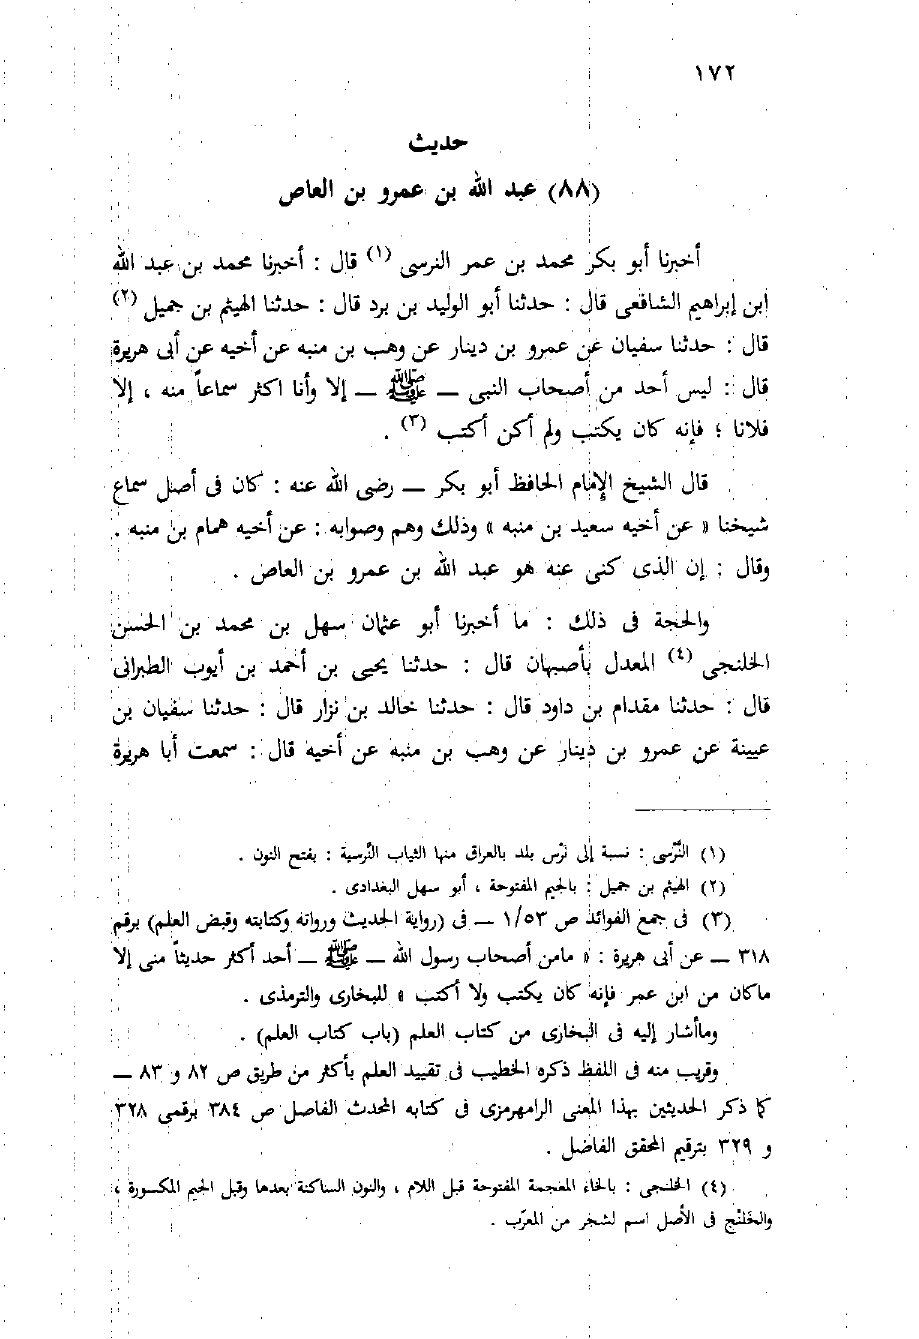 ١٧٢
حديث
(٨٨) عبد الله بن عمرو بن العاص
أخبرنا أبو بكر محمد بن عمر النرسى (١) قال : أخبرنا محمد بن عبد الله
ابن إبراهيم الشافعى قال : حدثنا أبو الوليد بن برد قال : حدثنا الهيثم بن جميل (٢)
قال : حدثنا سفيان عن عمرو بن دينار عن وهب بن منبه عن أخيه عن أبى هريرة
قال : ليس أحد من أصحاب النبى ــ ﷺ ــ إلا وأنا اكثر سماعاً منه ، إلا
فلانا ؛ فإنه كان يكتب ولم أكن أكتب (٣) .
قال الشيخ الإمام الحافظ أبو بكر ــ رضى الله عنه : كان فى أصل سماع
شيخنا « عن أخيه سعيد بن منبه » وذلك وهم وصوابه : عن أخيه همام بن منبه .
وقال : إن الذى كنى عنه هو عبد الله بن عمرو بن العاص .
والحجة فى ذلك : ما أخبرنا أبو عثمان سهل بن محمد بن الحسن
الخلنجى (٤) المعدل بأصبهان قال : حدثنا يحيى بن أحمد بن أيوب الطبرانى
قال : حدثنا مقدام بن داود قال : حدثنا خالد بن نزار قال : حدثنا سفيان بن
عيينة عن عمرو بن دينار عن وهب بن منبه عن أخيه قال : سمعت أبا هريرة
(١) النَّرْسى : نسبة إلى نَرْس بلد بالعراق منها الثياب النَّرسية : بفتح النون .
(٢) الهيثم بن جميل : بالجيم المفتوحة ، أبو سهل البغدادى .
(٣) فى جمع الفوائد ص ١/٥٣ ــ فى (رواية الحديث ورواته وكتابته وقبض العلم) برقم
٣١٨ ــ عن أبى هريرة : « مامن أصحاب رسول الله ــ ﷺ ــ أحد أكثر حديثاً منى إلا
ماكان من ابن عمر فإنه كان يكتب ولا أكتب » للبخارى والترمذى .
وماأشار إليه فى البخارى من كتاب العلم (باب كتاب العلم) .
وقريب منه فى اللفظ ذكره الخطيب فى تقييد العلم بأكثر من طريق ص ٨٢ و ٨٣ ــ
كما ذكر الحديثين بهذا المعنى الرامهرمزى فى كتابه المحدث الفاصل ص ٣٨٤ برقمى ٣٢٨
و ٣٢٩ بترقيم المحقق الفاضل .
(٤) الخلنجى : بالخاء المعجمة المفتوحة قبل اللام ، والنون الساكنة بعدها وقبل الجيم المكسورة ،
والخَلَنْج فى الأصل اسم لشجر من المعرّب .